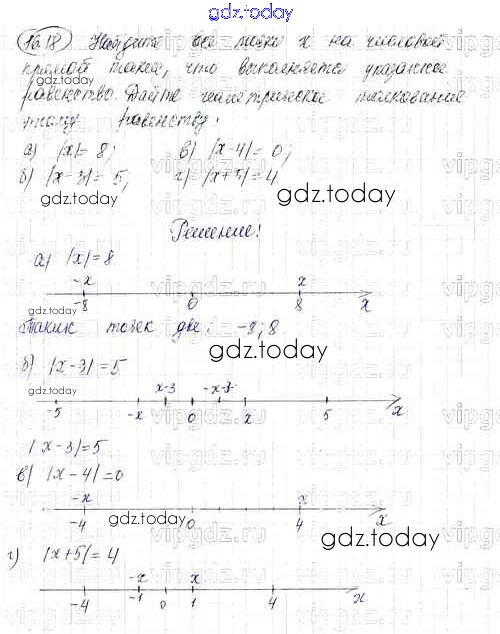 gdz.today
16.18 Найдите все точки x на числовой
прямой такие, что выполняется указанное
равенство. Дайте геометрическое толкование
этому равенству:
а) |x| = 8; в) |x-4| = 0;
б) |x-3| = 5; г) |x+5| = 4.
gdz.today gdz.today
Решение:
а) |x| = 8
-x x
-8 0 8 x
gdz.today
Таких точек две: -8; 8
б) |x-3| = 5
gdz.today
gdz.today
x-3 -x-3
-5 -x 0 x 5 x
|x-3| = 5
в) |x-4| = 0
-x x
-4 0 4 x
gdz.today
г) |x+5| = 4
gdz.today
-x x
-4 -1 0 1 4 x